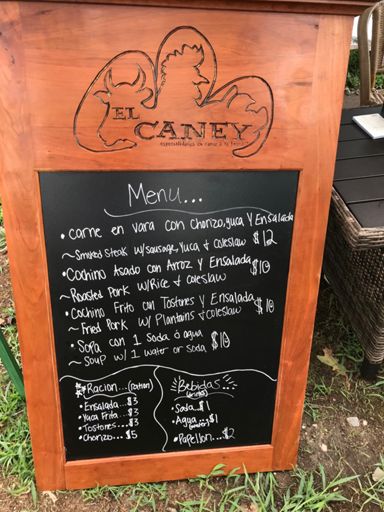 EL
CANEY
Menu...
• Carne en vara con Chorizo, yuca Y Ensalada
~ Smoked Steak w/ Sausage, Yuca & coleslaw $12
• Cochino Asado con Arroz y Ensalada
~ Roasted Pork w/ Rice & coleslaw $10
• Cochino Frito con Tostones Y Ensalada
~ Fried Pork w/ Plantains & coleslaw $10
• Sopa con 1 Soda ó agua
~ Soup w/ 1 water or Soda $10
Racion...
• Ensalada...$3
• Yuca Frita...$3
• Tostones...$3
• Chorizo...$5
Bebidas
(Drinks)
• Soda...$1
• Agua...$1
(water)
• Papellon...$2